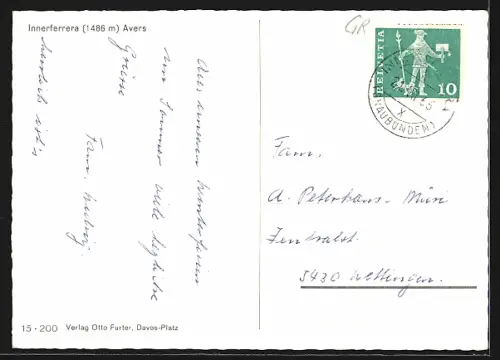 Innerferrera (1486 m) Avers
Aus unseren Winterferien
im Sommer viele herzliche
Grüsse
herrlich ist's
Fam.
GR
HELVETIA
10
(GRAUBÜNDEN)
Fam.
A. Peterhans-Müri
Zentralst.
5430 Wettingen.
15 - 200 Verlag Otto Furter, Davos-Platz